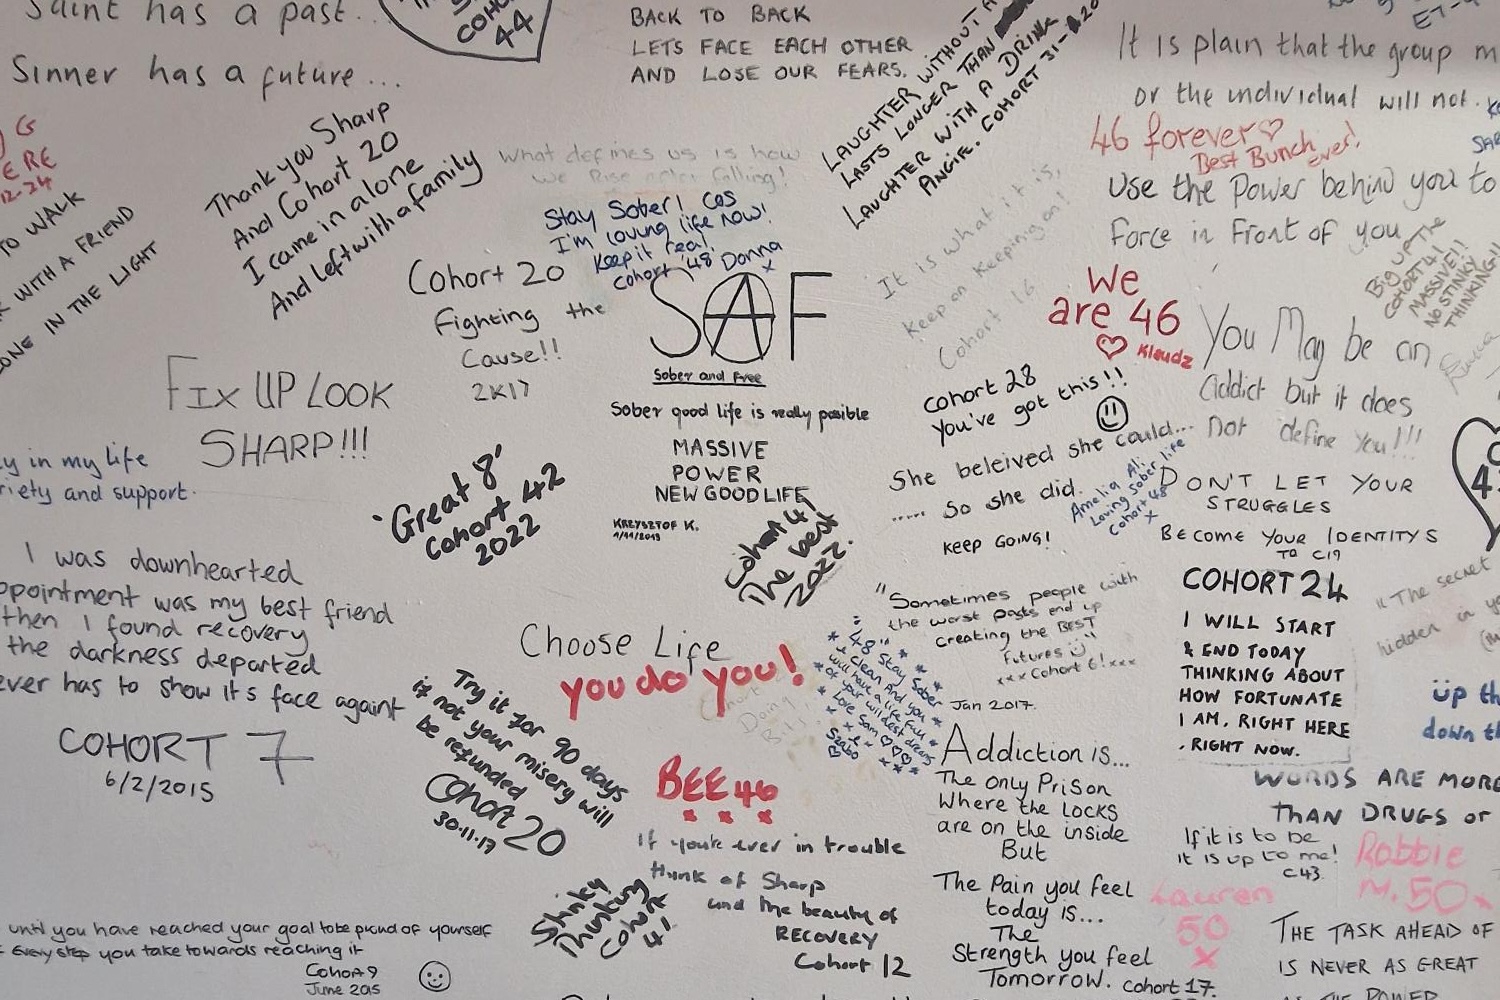 Saint has a past...
Sinner has a future...
COHORT
44
BACK TO BACK
LETS FACE EACH OTHER
AND LOSE OUR FEARS.
LAUGHTER WITHOUT A
LASTS LONGER THAN
LAUGHTER WITH A DRINK
ANGIE. COHORT 31-
It is plain that the group m
or the individual will not.
46 forever♡
Best Bunch ever!
Use the Power behind you to
Force in Front of you
G
ERE
12-24
TO WALK
WITH A FRIEND
ONE IN THE LIGHT
Thank you Sharp
And Cohort 20
I came in alone
And left with a family
What defines us is how
we Rise after falling!
Stay Sober! Cos
I'm loving life now!
Keep it real
Cohort '48' Donna
x
Cohort 20
Fighting the
Cause!!
2K17
SAF
Sober and Free
Sober good life is really posible
MASSIVE
POWER
NEW GOOD LIFE
KRZYSZTOF K.
It is what it is,
Keep on Keeping on!
Cohort 16
We
are 46
♡ Klaudz
Big up The
Cohort 4!
MASSIVE!!
NO STINKY
THINKING!!
You May be an
addict but it does
not define you!!!
Cohort 28
You've got this!!
She beleived she could...
..... So she did.
KEEP GOING!
Amelia Ali
Loving Sober life
Cohort 48
x
DON'T LET YOUR
STRUGGLES
BECOME YOUR IDENTITYS
TO C19
FIX UP LOOK
SHARP!!!
y in my life
riety and support.
'Great 8'
Cohort 42
2022
Cohort 41
The best
2022.
I was downhearted
ppointment was my best friend
then I found recovery
the darkness departed
ever has to show it's face againt
COHORT 7
6/2/2015
Choose Life
you do you!
Try it for 90 days
if not your misery will
be refunded
Cohort 20
30.11.17
"Sometimes people with
the worst pasts end up
creating the BEST
Futures
xxx Cohort 6! xxx
"48" Stay Sober
+ clean And you
will have a life full
of your wildest dreams
Love Sam ♡♡♡
x x
Szabo
♡
COHORT 24
I WILL START
& END TODAY
THINKING ABOUT
HOW FORTUNATE
I AM, RIGHT HERE
, RIGHT NOW.
"The secret
hidden in yo
üp th
down th
Jan 2017.
Addiction is...
The only Prison
Where the Locks
are on the inside
But
The Pain you feel
today is...
The
Strength you feel
Tomorrow. cohort 17.
BEE 46
x x x
If you're ever in trouble
think of Sharp
and the beauty of
RECOVERY
Cohort 12
Stinky
Thinking
Cohort
41
WORDS ARE MORE
THAN DRUGS or
If it is to be
it is up to me!
C43.
Robbie
M. 50x
Lauren
50
x
THE TASK AHEAD OF
IS NEVER AS GREAT
AS THE POWER
until you have reached your goal to be proud of yourself
Every step you take towards reaching it
Cohort 9
June 2015